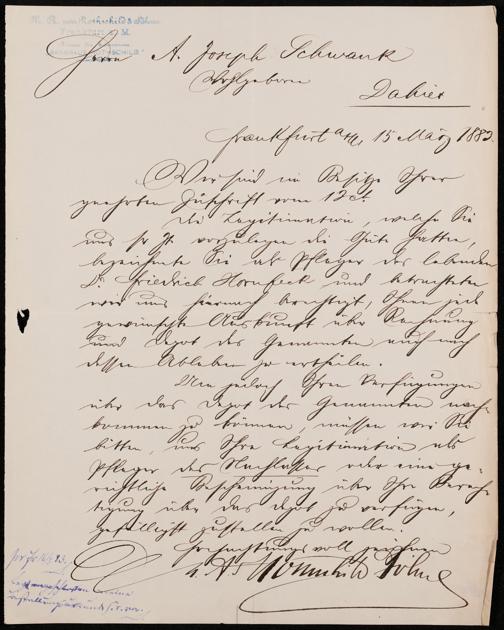 M. A. von Rothschild & Söhne
Frankfurt a. M.
Herrn A. Joseph Schwank
Wohlgeboren
Dahier
Frankfurt a/M, 15 März 1883.
Wir sind im Besitze Ihrer
geehrten Zuschrift vom 12 ct.
Die Legitimation, welche Sie
uns sr. Zt. vorzulegen die Güte hatten,
bezeichnete Sie als Pfleger des lebenden
Dr. Friedrich Hornfeck und betrachteten
wir uns hiernach berechtigt, Ihnen jede
gewünschte Auskunft über Rechnung
und Depot des Genannten auch nach
dessen Ableben zu ertheilen.
Um jedoch Ihren Verfügungen
über das Depot des Genannten nach-
kommen zu können, müssen wir Sie
bitten, uns Ihre Legitimation als
Pfleger des Nachlasses oder eine ge-
richtliche Bescheinigung über Ihre Berech-
tigung über das Depot zu verfügen,
gefälligst zustellen zu wollen.
Hochachtungsvoll zeichnen